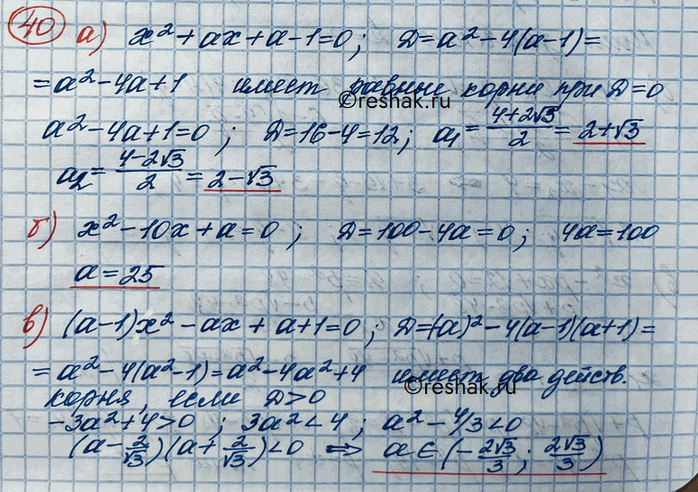 40 а) x² + ax + a - 1 = 0 ; D = a² - 4(a-1) =
= a² - 4a + 1 имеет равные корни при D = 0
©reshak.ru
a² - 4a + 1 = 0 ; D = 16 - 4 = 12 ; a₁ = (4+2√3)/2 = 2+√3
a₂ = (4-2√3)/2 = 2-√3
б) x² - 10x + a = 0 ; D = 100 - 4a = 0 ; 4a = 100
a = 25
в) (a-1)x² - ax + a + 1 = 0 ; D = (-a)² - 4(a-1)(a+1) =
= a² - 4(a²-1) = a² - 4a² + 4 имеет два действ.
©reshak.ru
корня, если D > 0
-3a² + 4 > 0 ; 3a² < 4 ; a² - 4/3 < 0
(a - 2/√3)(a + 2/√3) < 0 ⇒ a ∈ (-2√3/3 ; 2√3/3)